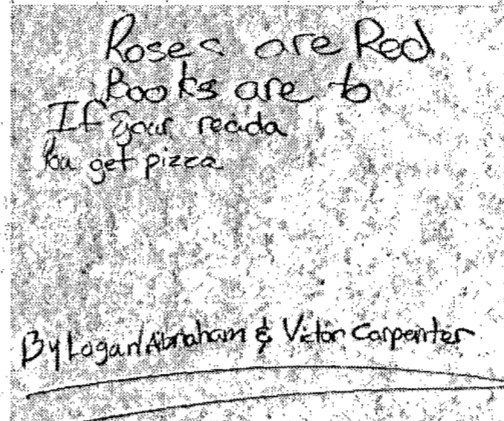 Roses are Red
Books are to
If your reada
You get pizza
By Logan Abraham & Victor Carpenter